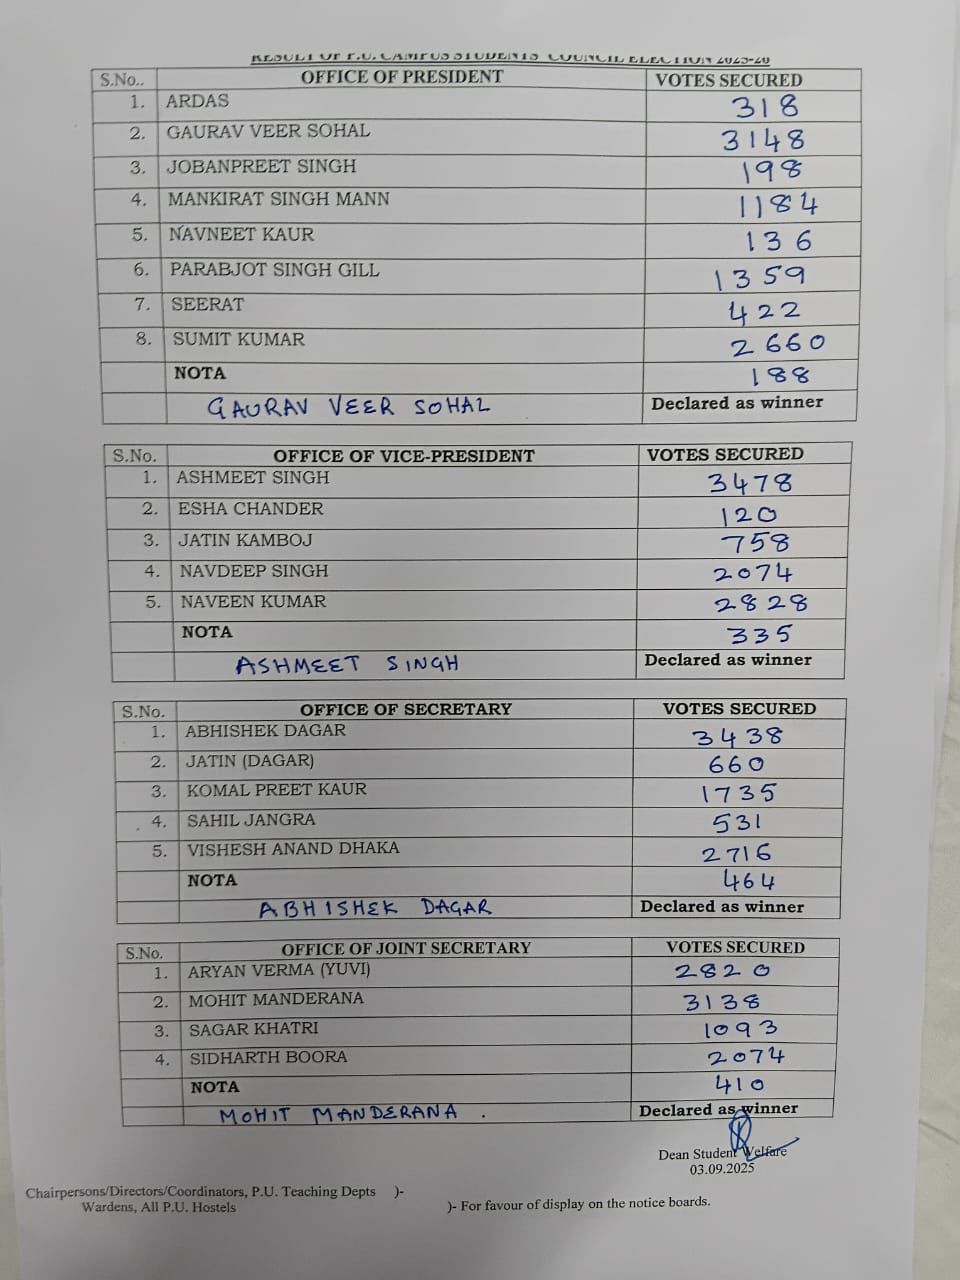 RESULT OF P.U. CAMPUS STUDENTS' COUNCIL ELECTION 2025-26
S.No.. OFFICE OF PRESIDENT VOTES SECURED
1. ARDAS 318
2. GAURAV VEER SOHAL 3148
3. JOBANPREET SINGH 198
4. MANKIRAT SINGH MANN 1184
5. NAVNEET KAUR 136
6. PARABJOT SINGH GILL 1359
7. SEERAT 422
8. SUMIT KUMAR 2660
NOTA 188
GAURAV VEER SOHAL Declared as winner
S.No. OFFICE OF VICE-PRESIDENT VOTES SECURED
1. ASHMEET SINGH 3478
2. ESHA CHANDER 120
3. JATIN KAMBOJ 758
4. NAVDEEP SINGH 2074
5. NAVEEN KUMAR 2828
NOTA 335
ASHMEET SINGH Declared as winner
S.No. OFFICE OF SECRETARY VOTES SECURED
1. ABHISHEK DAGAR 3438
2. JATIN (DAGAR) 660
3. KOMAL PREET KAUR 1735
4. SAHIL JANGRA 531
5. VISHESH ANAND DHAKA 2716
NOTA 464
ABHISHEK DAGAR Declared as winner
S.No. OFFICE OF JOINT SECRETARY VOTES SECURED
1. ARYAN VERMA (YUVI) 2820
2. MOHIT MANDERANA 3138
3. SAGAR KHATRI 1093
4. SIDHARTH BOORA 2074
NOTA 410
MOHIT MANDERANA . Declared as winner
Dean Student Welfare
03.09.2025
Chairpersons/Directors/Coordinators, P.U. Teaching Depts )-
Wardens, All P.U. Hostels )- For favour of display on the notice boards.